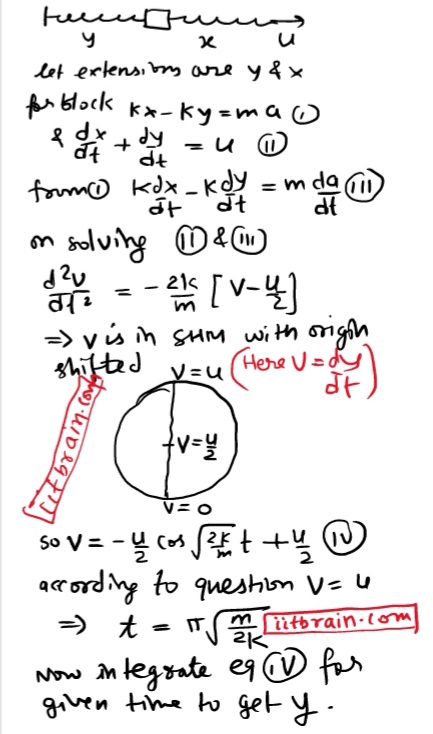 y x u
let extensions are y & x
for block Kx - Ky = ma (i)
& dx/dt + dy/dt = u (ii)
from (i) K dx/dt - K dy/dt = m da/dt (iii)
on solving (ii) & (iii)
d²v/dt² = - 2k/m [v - u/2]
⇒ v is in SHM with origin
shifted
v = u (Here v = dy/dt)
iitbrain.com
v = u/2
v = 0
so v = - u/2 cos √(2k/m) t + u/2 (iv)
according to question v = u
⇒ t = π √(m/2k) iitbrain.com
Now integrate eq (iv) for
given time to get y.